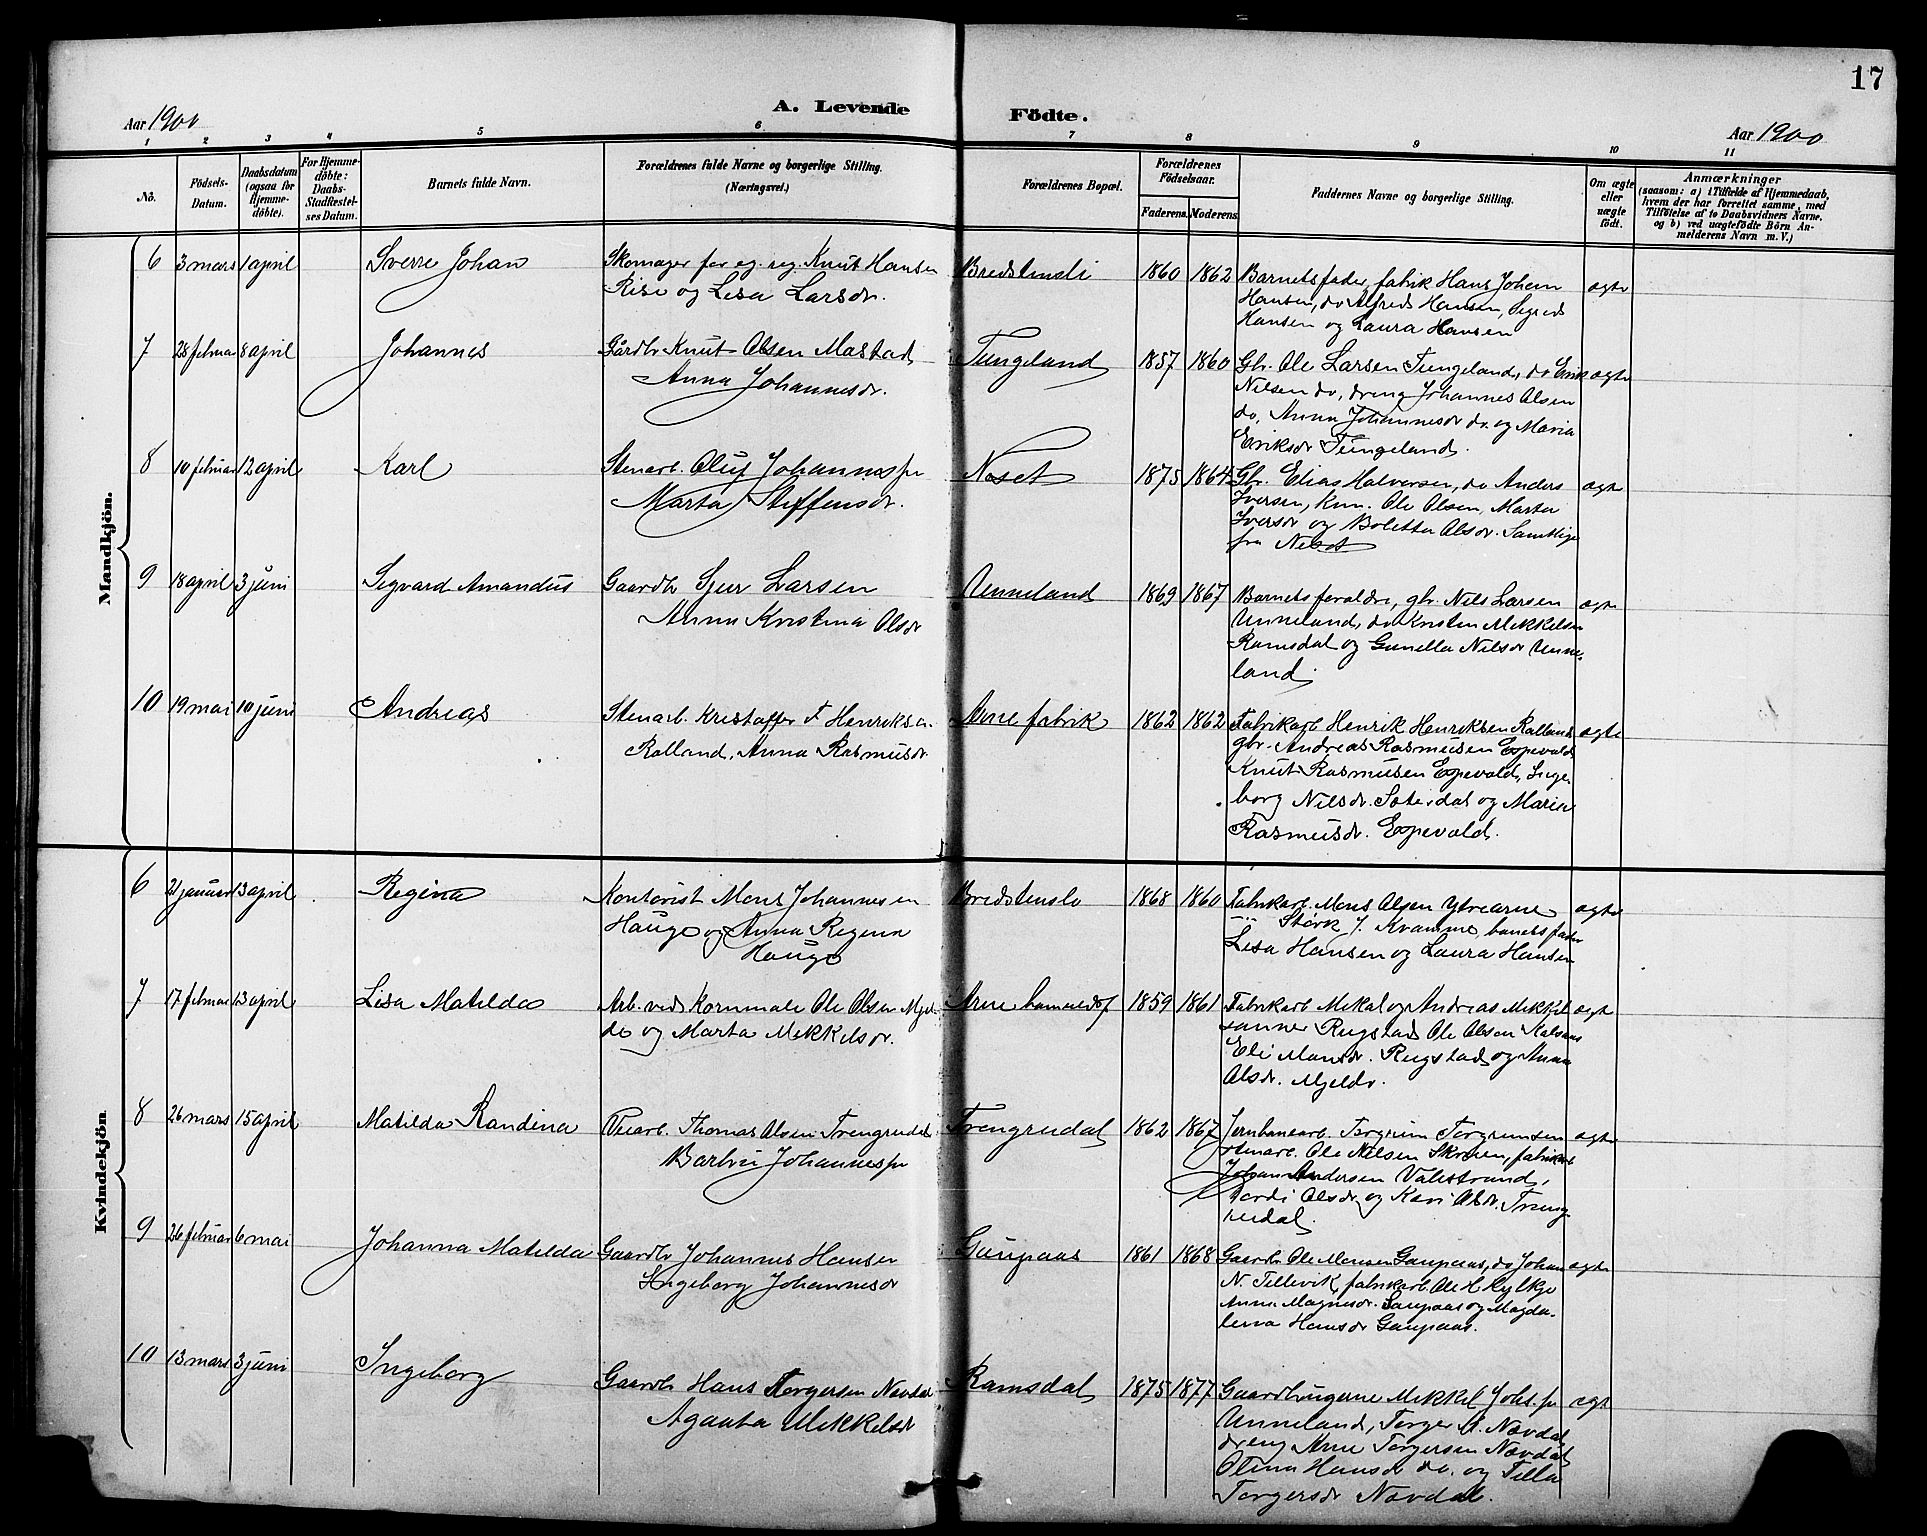 17
A. Levende Födte.
Aar 1900
Aar 1900
1 2 3 4 5 6 7 8 9 10 11
No.
Födsels-
Datum.
Daabsdatum
(ogsaa for
Hjemme-
döbte).
For Hjemme-
döbte:
Daabs-
Stadfæstel-
ses Datum.
Barnets fulde Navn.
Forældrenes fulde Navne og borgerlige Stilling.
(Næringsvei.)
Forældrenes Bopæl.
Forældrenes
Födselsaar.
Faderens. Moderens.
Faddernes Navne og borgerlige Stilling.
Om ægte
eller
uægte
födt.
Anmærkninger
(saasom: a) i Tilfælde af Hjemmedaab,
hvem der har forrettet samme, med
Tilföielse af to Daabsvidners Navne,
og b) ved uægtefödte Börn An-
melderens Navn m. V.)
Mandkjön.
6 3 mars 1 april Sverre Johan
Skomager for eg. reg. Knut Hansen
Rise og Lisa Larsdr.
Bredstensli 1860 1862
Barnets fader, fabrik Hans Johan
Hansen, do Alfred Hansen, Sigrid
Hansen og Laura Hansen
ægte
7 28 februar 8 april Johannes
Gårdbr Knut Olsen Mastad
Anna Johannesdr.
Tungeland 1857 1860
Gbr. Ole Larsen Tungeland, do Erik
Nilsen do, dreng Johannes Olsen
do, Anna Johannesdr do. og Maria
Eriksdr Tungeland.
ægte
8 10 februar 12 april Karl
Stenarb. Oluf Johannessen
Marta Steffensdr.
Neset 1875 1864
Gbr. Elias Halversen, do Anders
Iversen, Kun. Ole Olsen, Marta
Iversdr og Boletta Olsdr. Samtlige
fra Neset
ægte
9 18 april 3 juni Sigvard Amandus
Gaardbr Sjur Larsen
Anna Kristina Olsdr
Unneland 1869 1867
Barnets foraldre, gbr. Nils Larsen
Unneland, do Kristen Mikkelsen
Ramsdal og Gunella Nilsdr Unne-
land
ægte
10 19 mai 10 juni Andreas
Stenarb. Kristoffer F Henriksen
Rolland, Anna Rasmusdr
Arne fabrik 1862 1862
Fabrikarb Henrik Henriksen Rolland
gbr. Andreas Rasmusen Espevold
Knut Rasmusen Espevold, Inge-
borg Nilsdr. Sæterdal og Maria
Rasmusdr. Espevold.
ægte
Kvindekjön
6 21 januar 13 april Regina
Kontorist Mons Johannesen
Hauge og Anna Regina
Hauge
Bredstensli 1868 1860
Fabrikarb. Mons Olsen Ytrearne
Størk J. Kvamme, barnets fader
Lisa Hansen og Laura Hansen
ægte
7 17 februar 13 april Lisa Matilda
Arb. ved Kornmøle Ole Olsen Mjel-
de og Marta Mikkelsdr.
Arne 1859 1861
Fabrikarb Mikal og Andreas Mikkel-
sønner Rugstad Ole Olsen
Eli Monsdr. Rugstad og Anna
Olsdr. Mjelde.
ægte
8 26 mars 15 april Matilda Randina
Veiarb. Thomas Olsen Trengrudal
Barbru Johannesdr
Trengrudal 1862 1867
Jernbanearb. Torgrim Torgrimsen
Stenarb. Ole Nilsen, fabrikarb
Johan Andersen Valestrand,
Gerdi Olsdr og Kari Olsdr. Treng-
rudal.
ægte
9 26 februar 6 mai Johanna Matilda
Gaardbr Johannes Hansen
Ingeborg Johannesdr
Gaupaas 1861 1868
Gaardbr. Ole Monsen Gaupaas, do Johan
N. Tellevik, fabrikarb. Ole H Kylkje
Anna Magnusdr. Gaupaas og Magda-
lena Hansdr Gaupaas.
ægte
10 13 mars 3 juni Ingeborg
Gaardbr Hans Torgersen Navdal
Agaata Mikkelsdr
Ramsdal 1875 1877
Gaardbrugerne Mikkel Johs.sen
Unneland, Torger H. Navdal,
dreng Arne Torgersen Navdal
Olina Hansdr do. og Tilla
Torgersdr Navdal.
ægte